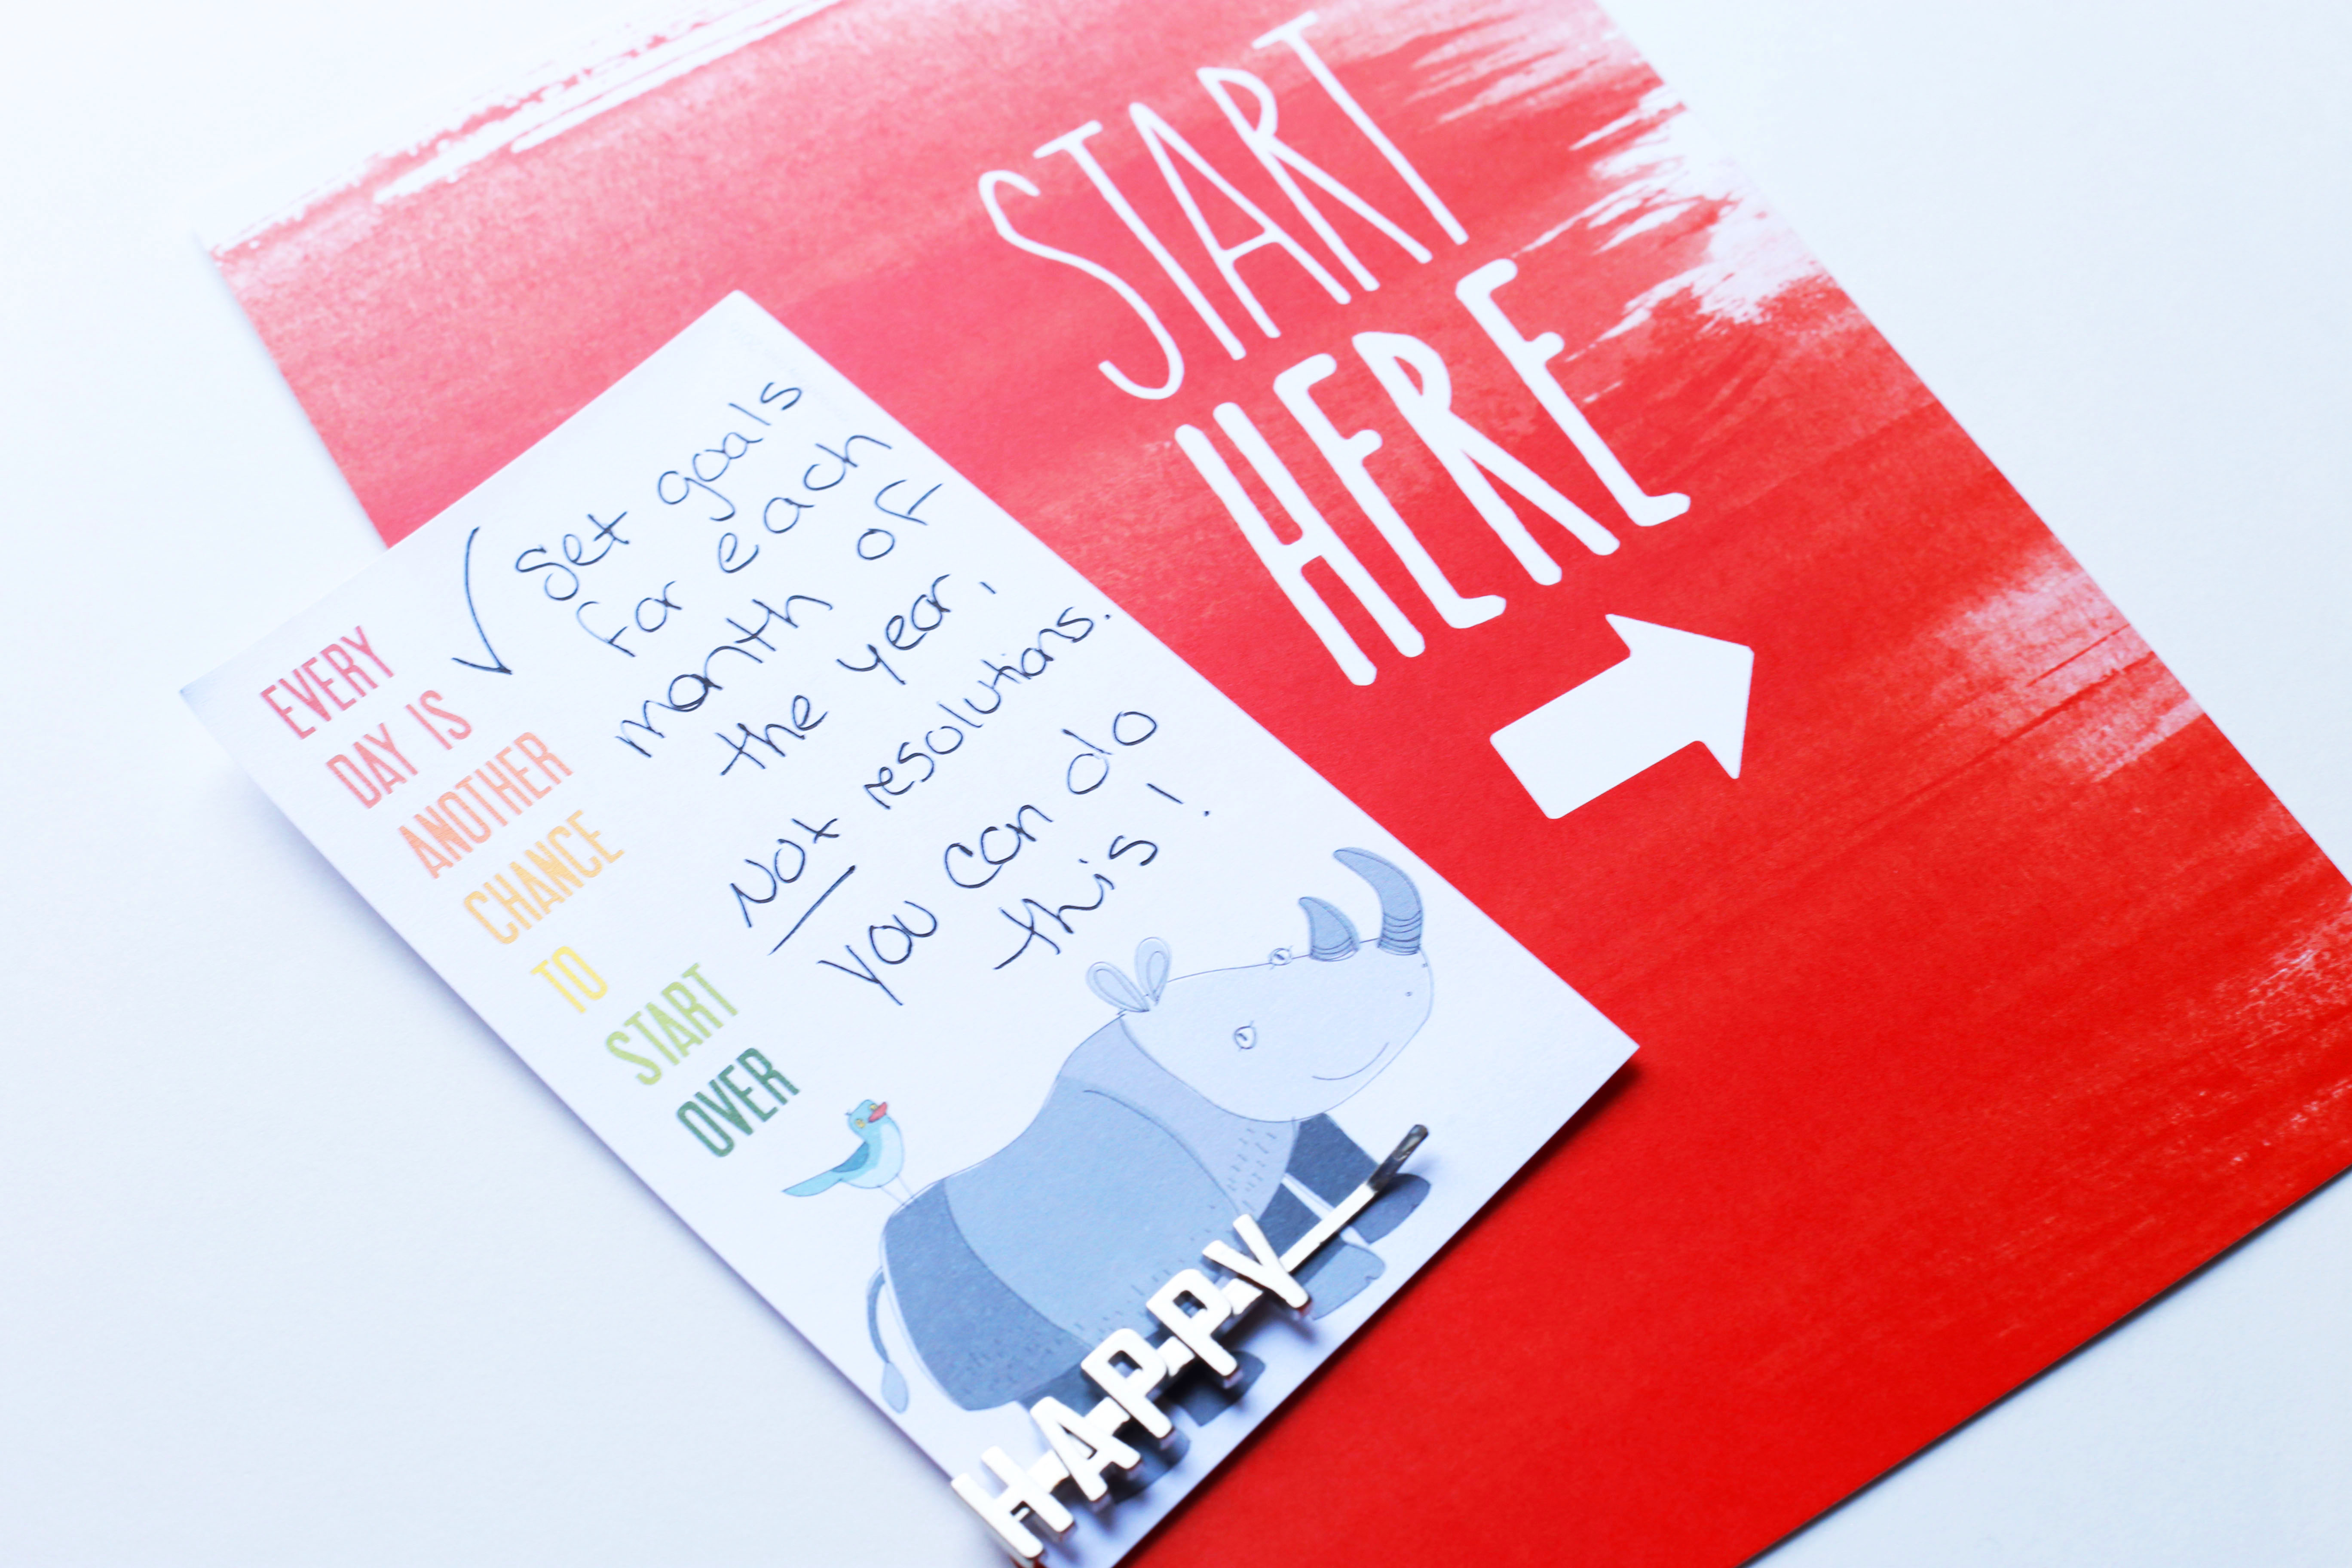 START
HERE
✓ Set goals
for each
month of
the year,
Not resolutions.
You can do
this!
EVERY
DAY IS
ANOTHER
CHANCE
TO
START
OVER
HAPPY